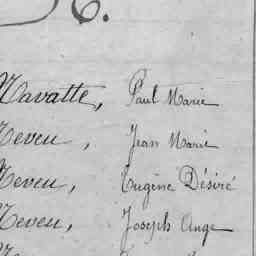 N.
Navatte, Paul Marie
Neveu, Jean Marie
Neveu, Eugène Désiré
Neveu, Joseph Ange